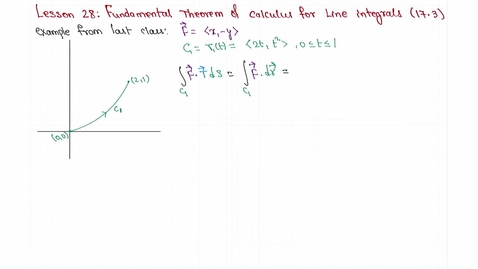 Lesson 28: Fundamental Theorem of calculus for Line integrals (17.3)
example from last class: F⃗ = <x, -y>
C₁ = r₁(t) = <2t, t²>, 0≤t≤1
∫_C₁ F⃗ · T⃗ ds = ∫_C₁ F⃗ · dr⃗ =
(2,1)
C₁
(0,0)